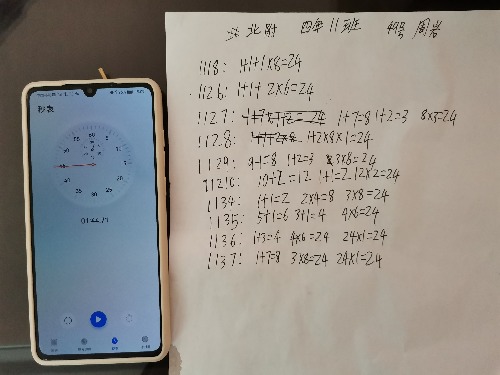 秒表
60
30
四年11班 49号 周岩
1118: 1+1+1×8=24
1126: 1+1+ 2×6=24
1127: 1+7=8 1+2=3 8×3=24
1128: 1+2×8×1=24
1129: 1=8 1+2=3 3×8=24
11210: 10+2=12 1+1=2 12×2=24
1134: 1+1=2 2×4=8 3×8=24
1135: 5+1=6 3+1=4 4×6=24
1136: 1+3=4 4×6=24 24×1=24
1137: 1+7=8 3×8=24 24×1=24